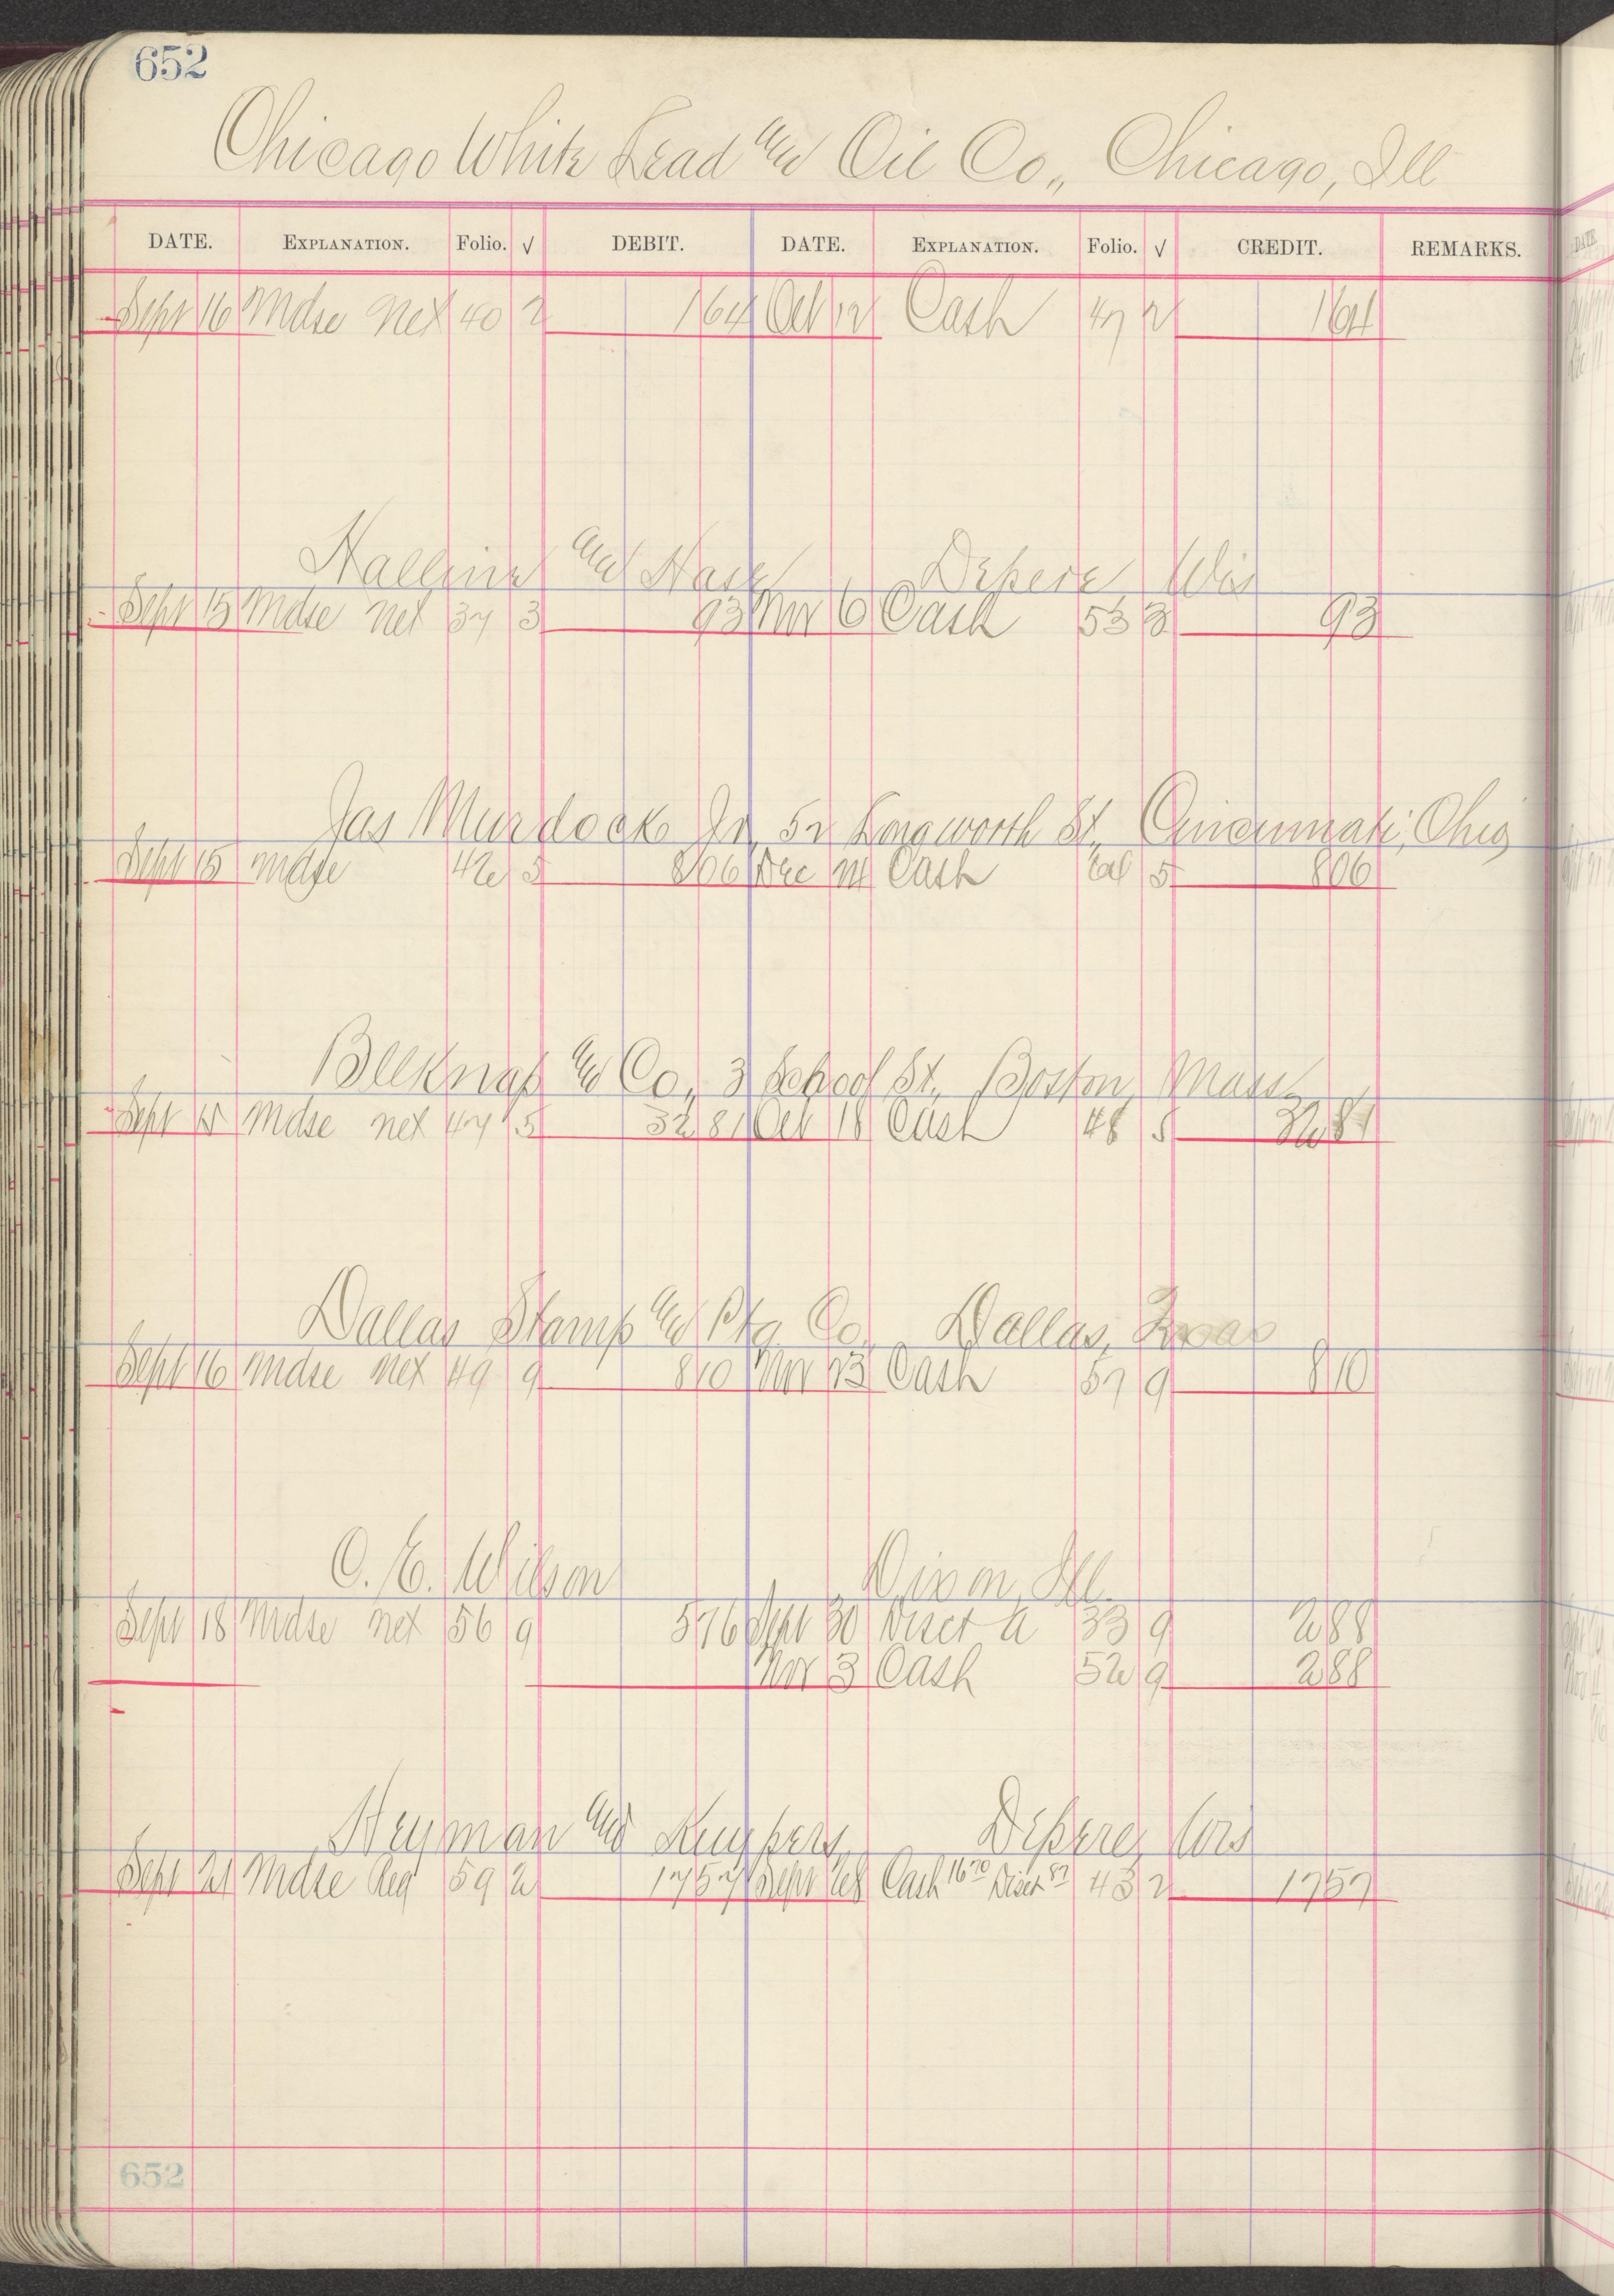 652
Chicago White Lead and Oil Co., Chicago, Ill
DATE. EXPLANATION. Folio. √ DEBIT. DATE. EXPLANATION. Folio. √ CREDIT. REMARKS.
Sept 16 Mdse net 40 2 1 64 Oct 12 Cash 47 2 1 64
and Depere Wis
Sept 15 Mdse net 37 3 93 Nov 6 Cash 53 3 93
Jas Murdock Jr, 52 Longworth St., Cincinnati, Ohio
Sept 15 Mdse 42 5 8 06 Dec 14 Cash 5 8 06
Belknap and Co., 3 School St., Boston, Mass
Sept 15 Mdse net 47 5 32 81 Oct 18 Cash 48 5 32 81
Dallas Stamp and Ptg Co., Dallas, Texas
Sept 16 Mdse net 49 9 8 10 Nov 23 Cash 57 9 8 10
C. E. Wilson Dixon, Ill.
Sept 18 Mdse net 56 9 5 76 Sept 30 Disct a 33 9 2 88
Nov 3 Cash 52 9 2 88
Heyman and Kuypers, Depere, Wis
Sept 21 Mdse Reg 59 2 17 57 Sept 28 Cash 16 70 Disct 87 43 2 17 57
652